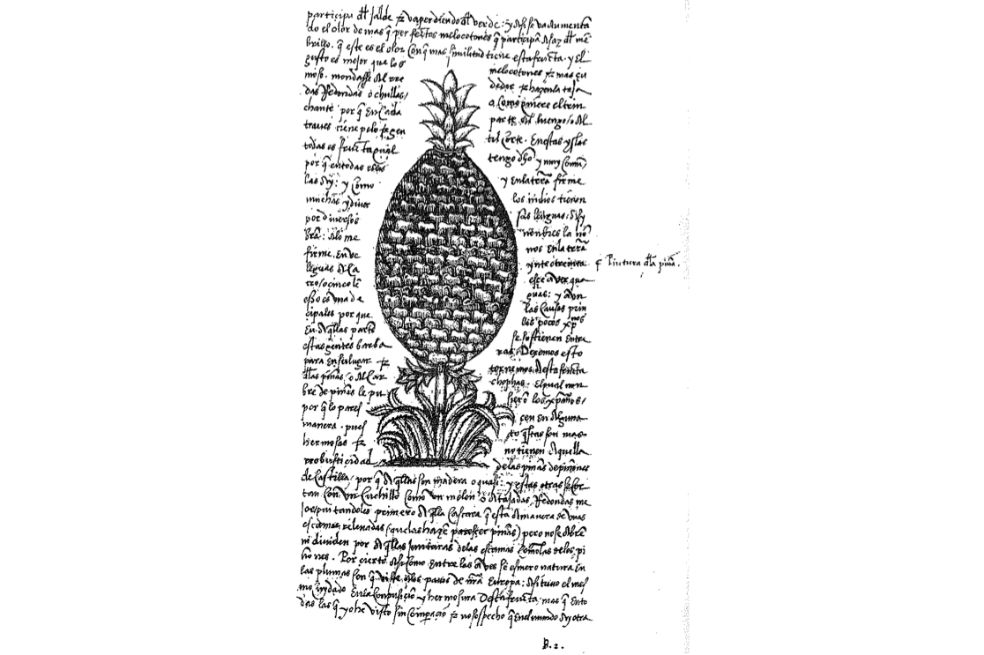 participa dl Jalde ꝛ va perdiendo dl verde: y assi se va aumentã
do el olor de mas q̃ perfectos melocotones q̃ participã assaz dl me
brillo. q̃ este es el olor con q̃ mas similitud tiene esta fructa. y el
gusto es mejor que los melocotones ꝛ mas çu
moso. mondasse al rre dedor ꝛ hazenla taja
das Redondas o chullas / o como quiere el trin
chante. por q̃ en cada parte al luengo / o al
traues tiene pelo ꝛ gen til corte. En estas yslas
todas es fructa qual tengo dho y muy comũ /
por q̃ en todas ellas y en la tierra firme
las ay: y como los indios tienen
muchas y diuer sas lenguas: assi
por diuersos nombres la nõ
brã: alo me nos en la tierra
firme. en ve ynte o treynta
leguas a ver qua
tro / o cinco lẽ guas: y aun
esso es una de las causas prin
cipales por que los pocos xp̃os
en aq̃llas partes se sostienen entre
estas gentes barba ras. Dexemos esto
para en su lugar ꝛ tornemos a esta fructa
dlas piñas. o alcar chophas. el qual nom
bre de piñas le pu sierõ los xpianos /
por q̃ lo pares cen en alguna
manera. pues to q̃ estas son mas
hermosas ꝛ no tienen aquella
rrobusticidad de las piñas de piñones
de Castilla. por q̃ aq̃llas son madera o quasi: y estas otras se cor
tan con un cuchillo como un melon o a tajadas Redondas me
jor quitandoles primero aq̃lla cascara q̃ esta a manera de unas
escamas rrelevadas (que las hazẽ parescer piñas) pero no se abrẽ
ni dividen por aq̃llas junturas de las escamas como las delos pi
ñones. Por cierto assi como entre las aves se esmero natura en
las plumas con q̃ viste los pavos de nr̃a Europa: assi tuvo el mes
mo cuydado en la conpusiçiõ y hermosura desta fructa. mas q̃ en to
das las q̃ yo he visto sin comparaçiõ ꝛ no sospecho q̃ en el mundo ay otra
¶ Pintura dla piña.
B. 2.